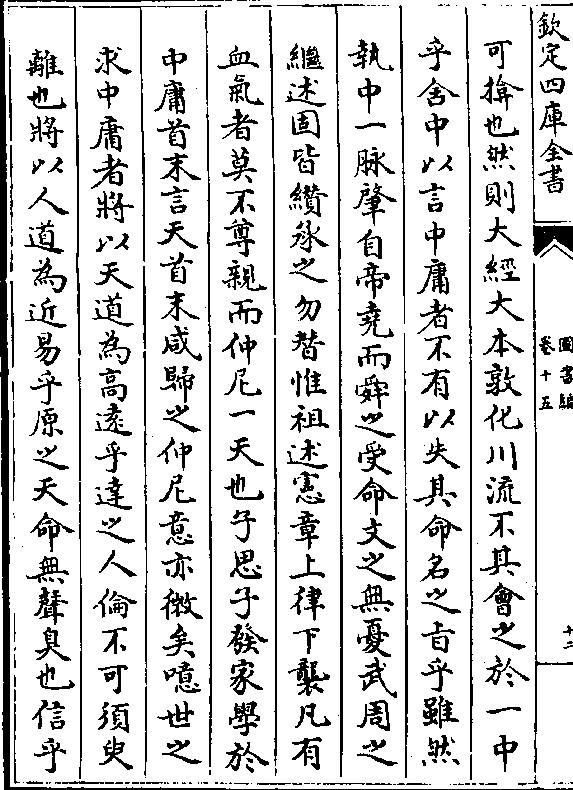 欽定四庫全書
圖書編
卷十五
十二
可揜也然則大經大本敦化川流不具會之於一中
乎舍中以言中庸者不有以失其命名之旨乎雖然
執中一脉肇自帝堯而舜之受命文之無憂武周之
繼述固皆纘承之勿替惟祖述憲章上律下襲凡有
血氣者莫不尊親而仲尼一天也子思子發家學於
中庸首末言天首末咸歸之仲尼意亦微矣噫世之
求中庸者將以天道為高遠乎達之人倫不可須臾
離也將以人道為近易乎原之天命無聲臭也信乎